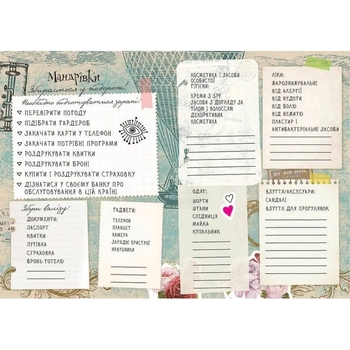 Мандрівки
Збираємося у подорож
Необхідно підготуватися заранні:
ПЕРЕВІРИТИ ПОГОДУ
ПІДІБРАТИ ГАРДЕРОБ
ЗАКАЧАТИ КАРТИ У ТЕЛЕФОН
ЗАКАЧАТИ ПОТРІБНІ ПРОГРАМИ
РОЗДРУКУВАТИ КВИТКИ
РОЗДРУКУВАТИ БРОНІ
КУПИТИ І РОЗДРУКУВАТИ СТРАХОВКУ
ДІЗНАТИСЯ У СВОЄМУ БАНКУ ПРО
ОБСЛУГОВУВАННЯ В ІНШІЙ КРАЇНІ
КОСМЕТИКА І ЗАСОБИ
ОСОБИСТОЇ
ГІГІЄНИ:
КРЕМИ З SPF
ЗАСОБИ З ДОГЛЯДУ ЗА
ТІЛОМ І ВОЛОССЯМ
ДЕКОРАТИВНА
КОСМЕТИКА
ЛІКИ:
ЖАРОЗНИЖУВАЛЬНІ
ВІД АЛЕРГІЇ
ВІД НУДОТИ
ВІД БОЛЮ
ВІД НЕЖИТЮ
ПЛАСТИР І
АНТИБАКТЕРІАЛЬНІ ЗАСОБИ
BY AIR MAIL
Збери валізу:
ДОКУМЕНТИ:
ПАСПОРТ
КВИТКИ
ПУТІВКА
СТРАХОВКА
БРОНЬ ГОТЕЛЮ
ГАДЖЕТИ:
ТЕЛЕФОН
ПЛАНШЕТ
КАМЕРА
ЗАРЯДНІ ПРИСТРОЇ
НАВУШНИКИ
ОДЯГ:
ШОРТИ
ШТАНИ
СПІДНИЦЯ
МАЙКА
КУПАЛЬНИК
ВЗУТТЯ/АКСЕСУАРИ:
САНДАЛІ
ВЗУТТЯ ДЛЯ ПРОГУЛЯНОК